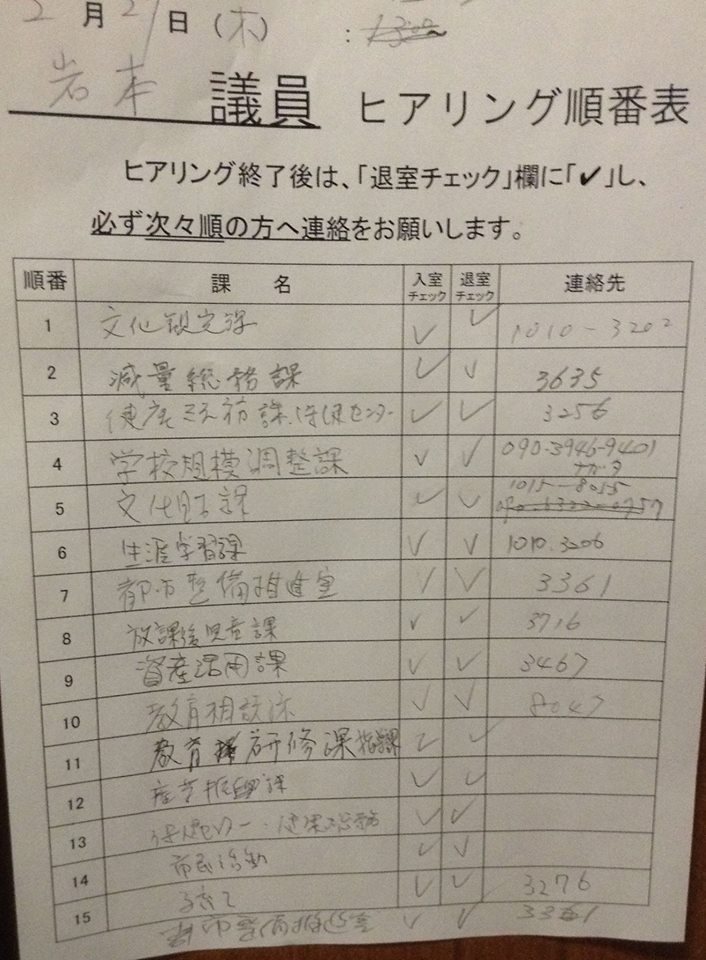 2月21日(木) :
岩本 議員 ヒアリング順番表
ヒアリング終了後は、「退室チェック」欄に「✔」し、
必ず次々順の方へ連絡をお願いします。
順番 課名 入室チェック 退室チェック 連絡先
1 文化観光課 ✓ ✓ 1010-3202
2 減量総務課 ✓ ✓ 3635
3 課 ✓ ✓ 3256
4 学校規模調整課 ✓ ✓ 090-3946-9401
5 文化財課 ✓ ✓ 1015-8055
6 生涯学習課 ✓ ✓ 1010.3206
7 都市整備推進室 ✓ ✓ 3361
8 放課後児童課 ✓ ✓ 3716
9 資産活用課 ✓ ✓ 3467
10 教育相談 ✓ ✓ 8047
11 教育研修課指導課 ✓ ✓
12 産業振興課 ✓ ✓
13 ✓ ✓
市民活動 ✓ ✓
14 ✓ ✓ 3276
15 都市整備推進室 ✓ ✓ 3361